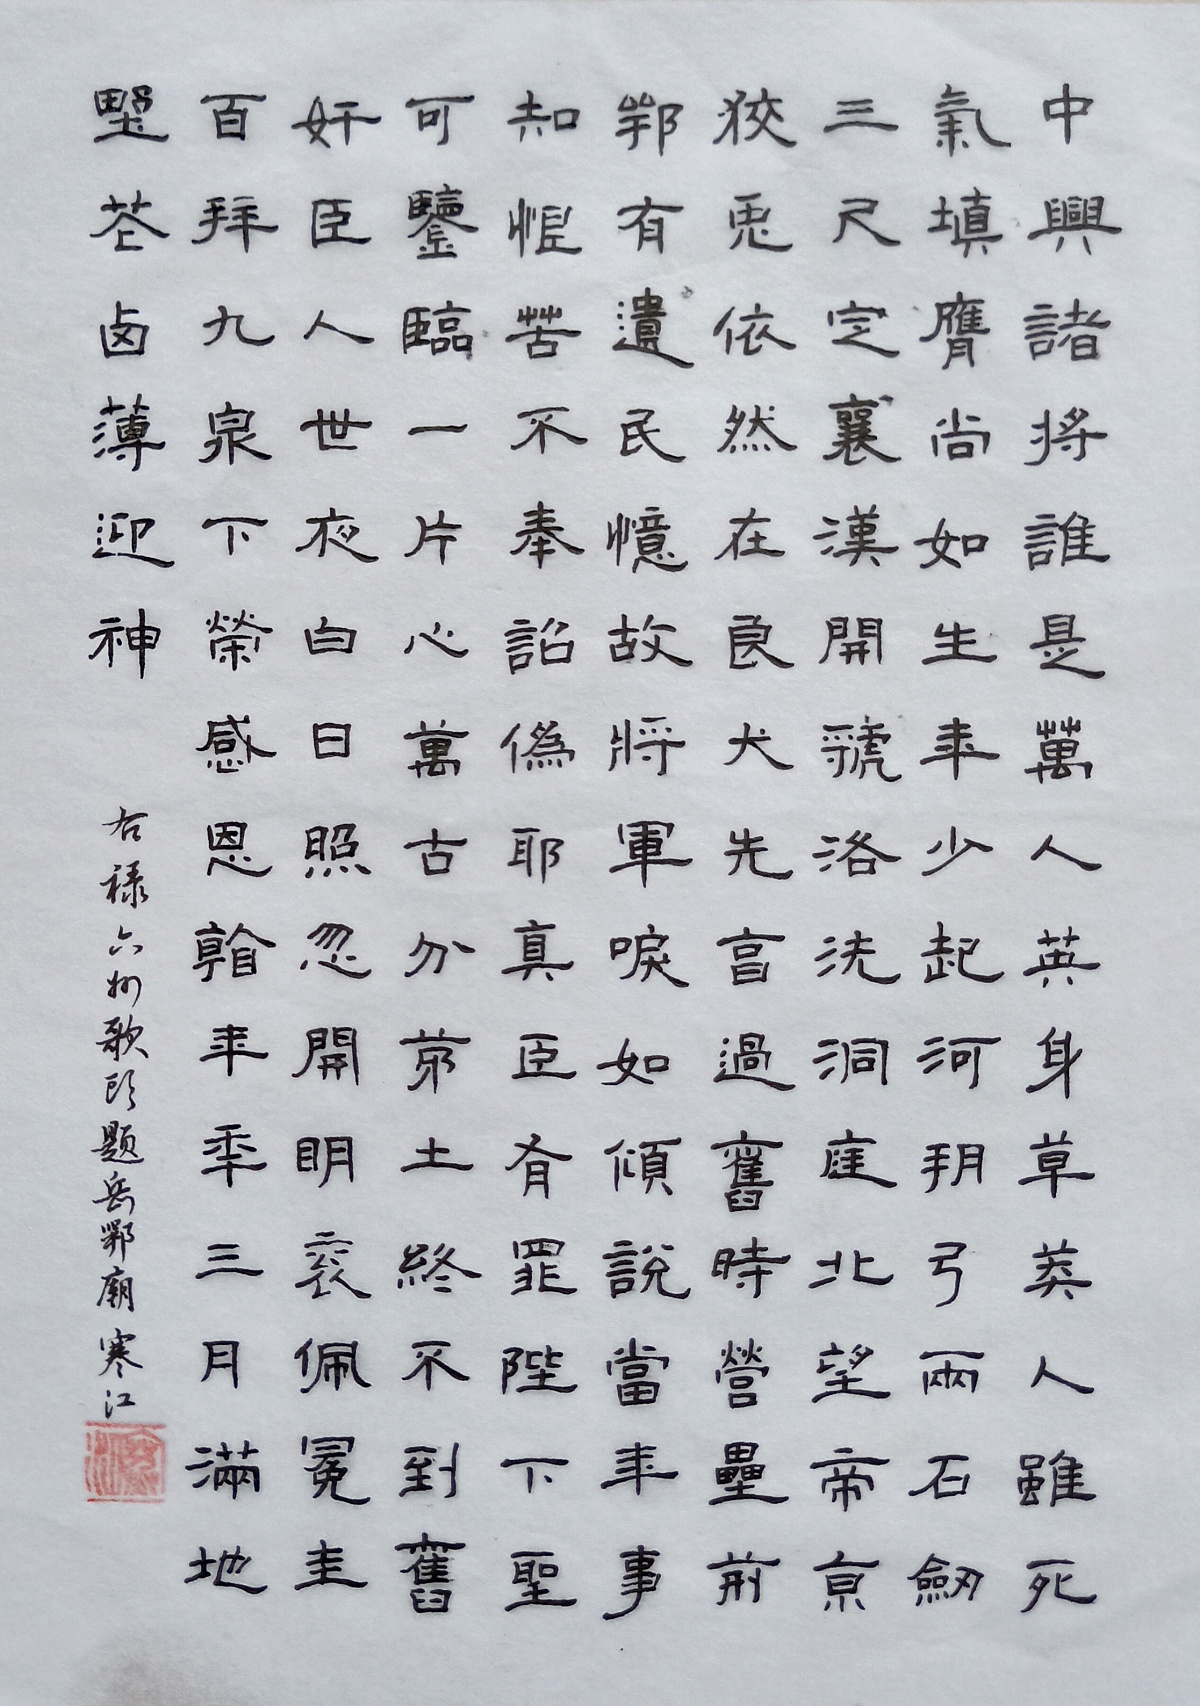 中興諸將誰是萬人英身草莽人雖死
氣填膺尚如生年少起河朔弓兩石劒
三尺定襄漢開虢洛洗洞庭北望帝京
狡兎依然在良犬先亯過舊時營壘前
鄂有遺民憶故將軍唳如傾說當年事
知恨苦不奉詔僞耶真臣有罪陛下聖
可鑒臨一片心萬古分茅土終不到舊
奸臣人世夜白日照忽開明袞佩冕圭
百拜九泉下榮感恩翰年年三月滿地
野芲卤薄迎神
右禄六州歌头题岳鄂廟寒江